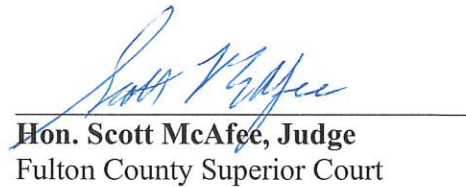 Scott McAfee
Hon. Scott McAfee, Judge
Fulton County Superior Court